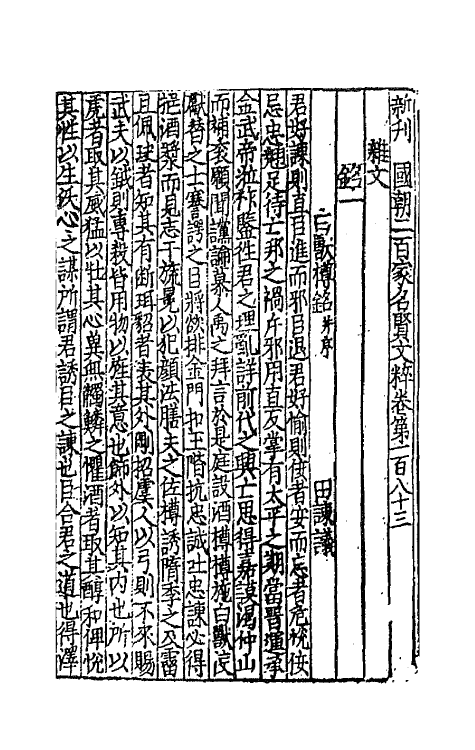 新刊國朝二百家名賢文粹卷第一百八十三
雜文
銘一
白獸樽銘并序 田諫議
君好諫則直臣進而邪臣退君好愉則佞者安而忠者危悅佞
忌忠翹足待亡邦之禍斥邪用直反掌有太平之期當晉壇承
金武帝涖祚鑒往君之理亂詳前代之興亡思得嘉謨渴仲山
而補袞願聞讜論慕大禹之拜言於是庭設酒樽樽施白獸良
獻替之士謇諤之臣將欲排金門扣玉階抗忠誠吐忠諫必得
挹酒漿而見志干旒冕以犯顏法膳夫之佐樽誘隋季之及霤
且佩玦者知其有斷珥貂者表其外剛招虞人以弓則不來賜
武夫以鉞則專殺皆用物以旌其意也飾外以知其内也所以
虎者取其威猛以壯其心冀無觸鱗之懼酒者取其醇和俾悅
其性以生沃心之謀所謂君誘臣之諫也臣合君之道也得澤